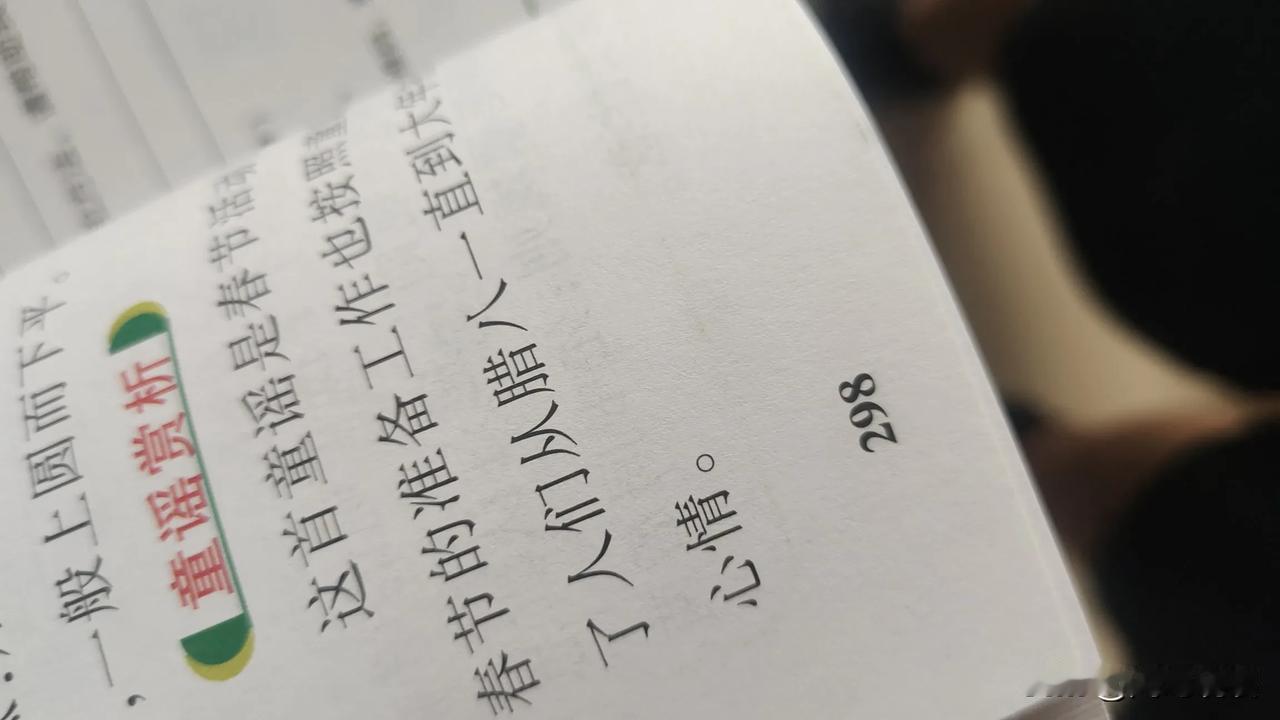 ，一般上圆而下平。
童谣赏析
这首童谣是春节活动
春节的准备工作也按照童
了人们从腊八一直到大年
心情。
298